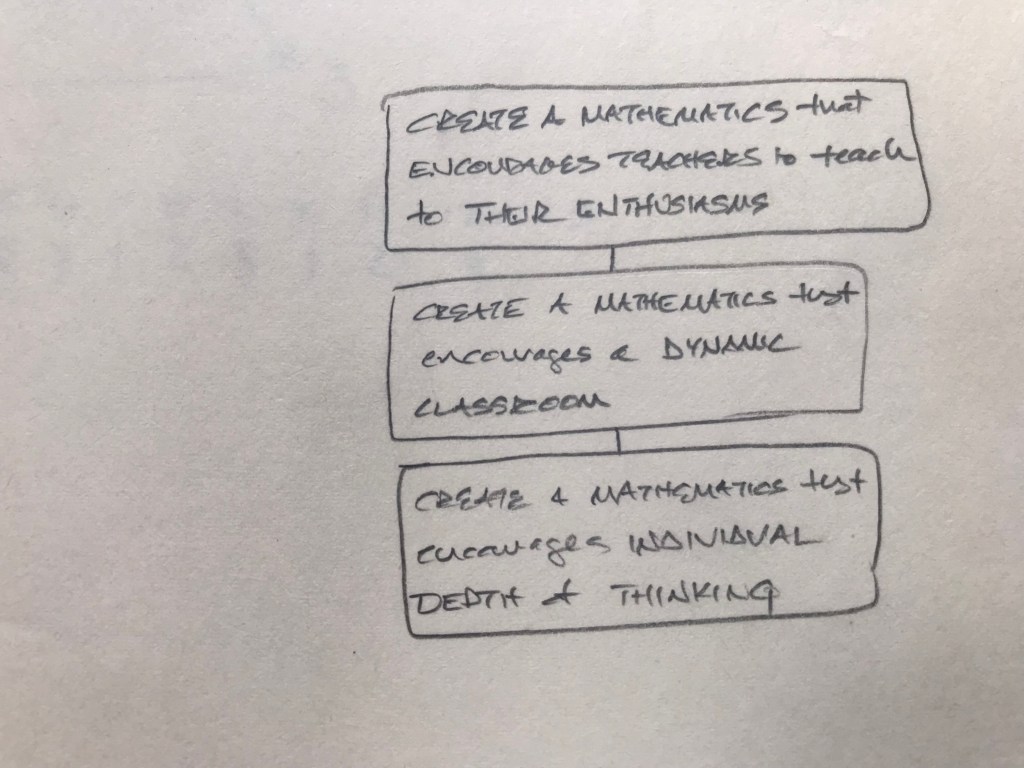 CREATE A MATHEMATICS that
ENCOURAGES TEACHERS to teach
to THEIR ENTHUSIASMS
CREATE A MATHEMATICS that
encourages a DYNAMIC
CLASSROOM
CREATE A MATHEMATICS that
encourages INDIVIDUAL
DEPTH of THINKING